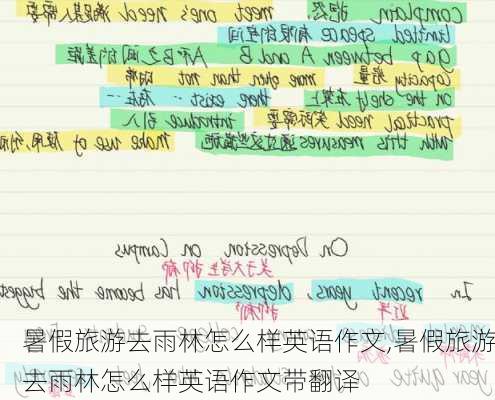 complain 抱怨 meet one's need 满足某人需要
limited space 有限的空间
gap between A and B A和B之间的差距
capacity 容量 more often than not 时常
on the shelf there exist … 存在 …
practical need 实际需要 introduce 引入
with this measures 通过这些措施 make use of 使用,
On Depression on Campus
关于大学生抑郁
In recent years, depression has become the biggest
近年
暑假旅游去雨林怎么样英语作文,暑假旅游
去雨林怎么样英语作文带翻译
year quite